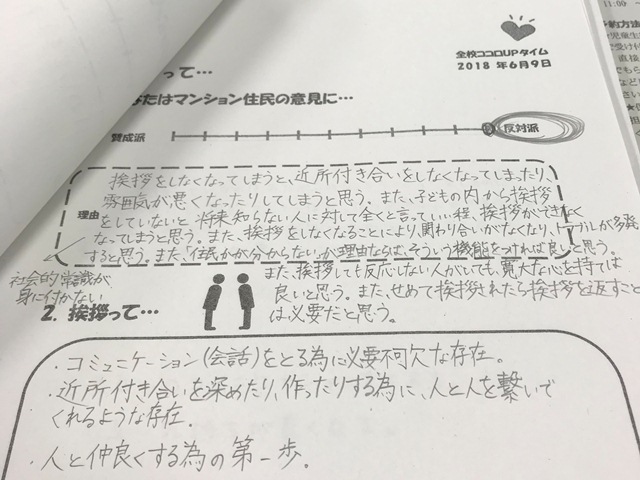 全校ココロUPタイム
2018 年6月9日
って…
たはマンション住民の意見に…
賛成派
反対派
理由
挨拶をしなくなってしまうと、近所付き合いをしなくなってしまったり、
雰囲気が悪くなったりしてしまうと思う。また、子どもの内から挨拶
をしていないと将来知らない人に対して全くと言っていい程、挨拶ができなく
なってしまうと思う。また、挨拶をしなくなることにより、関わり合いがなくなり、トラブルが多発
すると思う。また、「住民かが分からない」が理由ならば、そういう機能をつければ良いと思う。
また、挨拶しても反応しない人がいても、寛大な心を持てば
良いと思う。また、せめて挨拶されたら挨拶を返すこと
は必要だと思う。
社会的常識が、
身に付かない
2. 挨拶って…
・コミュニケーション(会話)をとる為に必要不可欠な存在。
・近所付き合いを深めたり、作ったりする為に、人と人を繋いで
くれるような存在.
・人と仲良くする為の第一歩。
11:00 ～
約方法
児童生
で受け
直接
でもら
など
さい